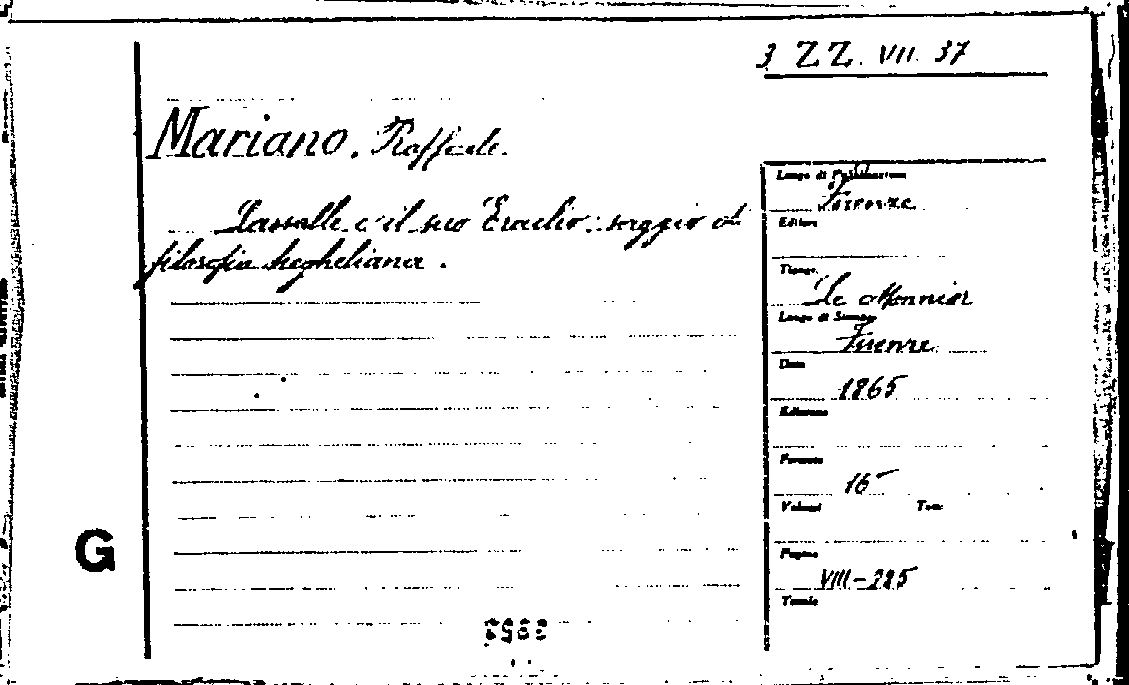 3 ZZ. VII. 37
Mariano, Raffaele.
Lassalle e il suo Eraclio: saggio di
filosofia hegheliana.
Luogo di Pubblicazione
Firenze
Editore
Tipogr.
Le Monnier
Luogo di Stampa
Firenze
Data
1865
Edizione
Formato
16
Volumi Tomi
Pagine
VIII-225
Tavole
G